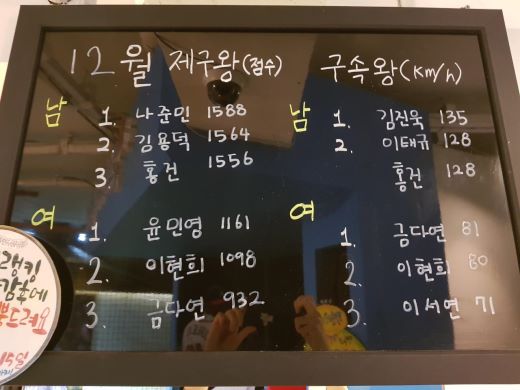 12월 제구왕(점수)
남
1. 나준민 1588
2. 김용덕 1564
3. 홍건 1556
여
1. 윤민영 1161
2. 이현희 1098
3. 금다연 932
구속왕(km/h)
남
1. 김진욱 135
2. 이태규 128
홍건 128
여
1. 금다연 81
2. 이현희 80
3. 이서연 71
랭킹